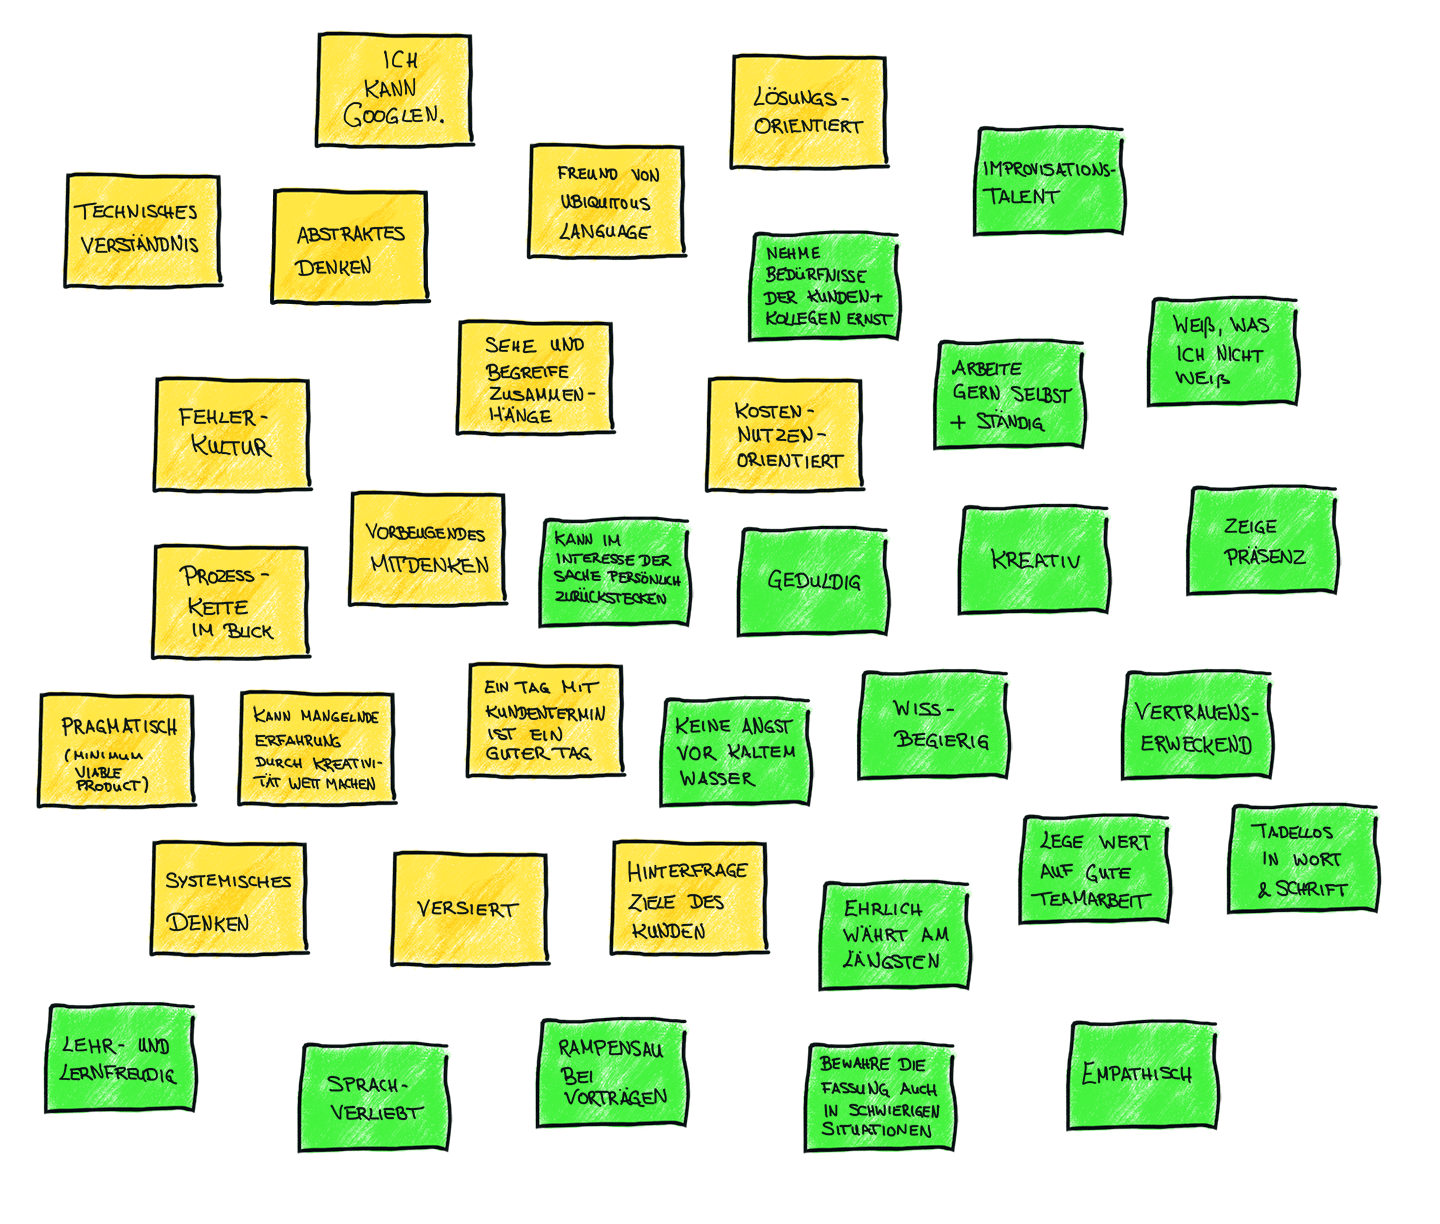 ICH
KANN
GOOGLEN.
LÖSUNGS-
ORIENTIERT
IMPROVISATIONS-
TALENT
FREUND VON
UBIQUITOUS
LANGUAGE
TECHNISCHES
VERSTÄNDNIS
ABSTRAKTES
DENKEN
NEHME
BEDÜRFNISSE
DER KUNDEN+
KOLLEGEN ERNST
WEIß, WAS
ICH NICHT
WEIß
SEHE UND
BEGREIFE
ZUSAMMEN-
HÄNGE
ARBEITE
GERN SELBST
+ STÄNDIG
FEHLER-
KULTUR
KOSTEN-
NUTZEN-
ORIENTIERT
VORBEUGENDES
MITDENKEN
KANN IM
INTERESSE DER
SACHE PERSÖNLICH
ZURÜCKSTECKEN
GEDULDIG
KREATIV
ZEIGE
PRÄSENZ
PROZESS-
KETTE
IM BLICK
PRAGMATISCH
(MINIMUM
VIABLE
PRODUCT)
KANN MANGELNDE
ERFAHRUNG
DURCH KREATIVI-
TÄT WETT MACHEN
EIN TAG MIT
KUNDENTERMIN
IST EIN
GUTER TAG
KEINE ANGST
VOR KALTEM
WASSER
WISS-
BEGIERIG
VERTRAUENS-
ERWECKEND
SYSTEMISCHES
DENKEN
VERSIERT
HINTERFRAGE
ZIELE DES
KUNDEN
EHRLICH
WÄHRT AM
LÄNGSTEN
LEGE WERT
AUF GUTE
TEAMARBEIT
TADELLOS
IN WORT
& SCHRIFT
LEHR- UND
LERNFREUDIG
SPRACH-
VERLIEBT
RAMPENSAU
BEI
VORTRÄGEN
BEWAHRE DIE
FASSUNG AUCH
IN SCHWIERIGEN
SITUATIONEN
EMPATHISCH